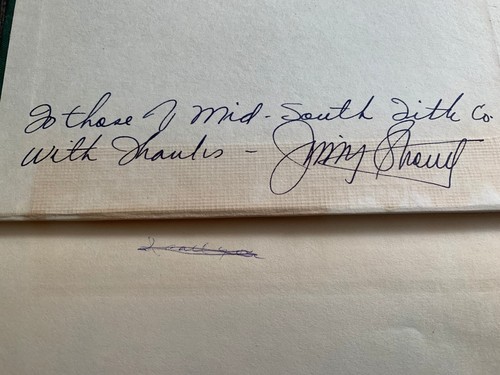 To those of Mid-South Title Co.
With Thanks - Jimmy